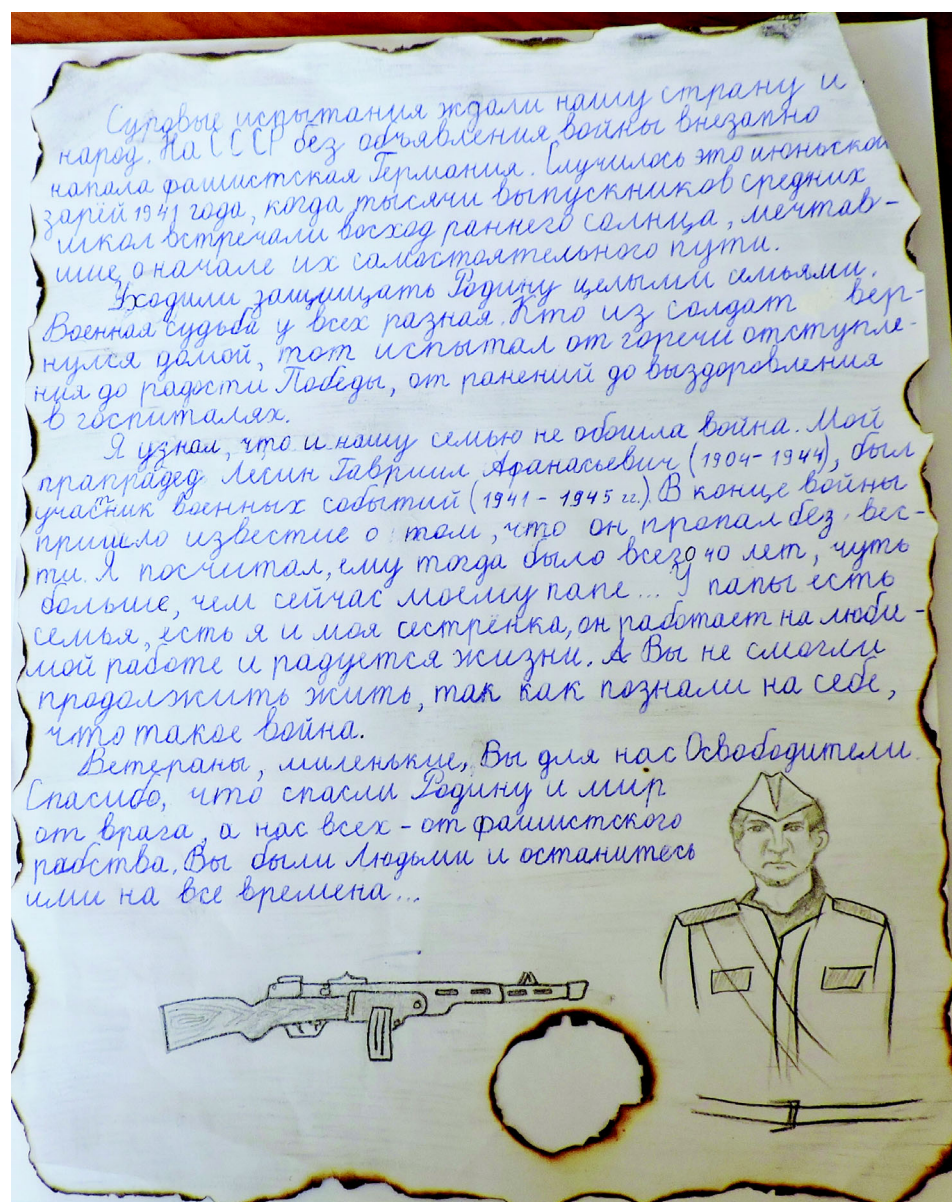 Суровые испытания ждали нашу страну и
народ. На СССР без объявления войны внезапно
напала фашистская Германия. Случилось это июньской
зарёй 1941 года, когда тысячи выпускников средних
школ встречали восход раннего солнца, мечтав-
шие о начале их самостоятельного пути.
Уходили защищать Родину целыми семьями.
Военная судьба у всех разная. Кто из солдат вер-
нулся домой, тот испытал от горечи отступле-
ния до радости Победы, от ранений до выздоровления
в госпиталях.
Я узнал, что и нашу семью не обошла война. Мой
прапрадед Лесин Гавриил Афанасьевич (1904-1944), был
участник военных событий (1941 - 1945 гг.). В конце войны
пришло известие о том, что он пропал без вес-
ти. Я посчитал, ему тогда было всего 40 лет, чуть
больше, чем сейчас моему папе... У папы есть
семья, есть я и моя сестрёнка, он работает на люби-
мой работе и радуется жизни. А Вы не смогли
продолжить жить, так как познали на себе,
что такое война.
Ветераны, миленькие, Вы для нас Освободители.
Спасибо, что спасли Родину и мир
от врага, а нас всех - от фашистского
рабства. Вы были Людьми и останитесь
ими на все времена...